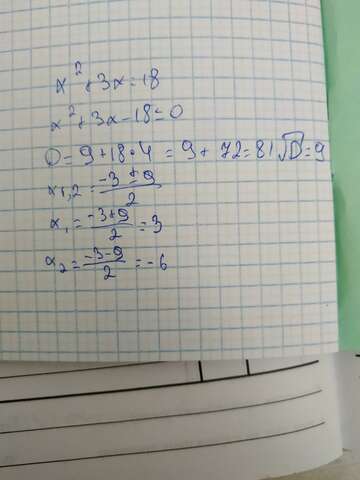 x² + 3x = 18
x² + 3x - 18 = 0
D = 9 + 18 • 4 = 9 + 72 = 81 √D = 9
x₁,₂ = (-3 ± 9)/2
x₁ = (-3+9)/2 = 3
x₂ = (-3-9)/2 = -6